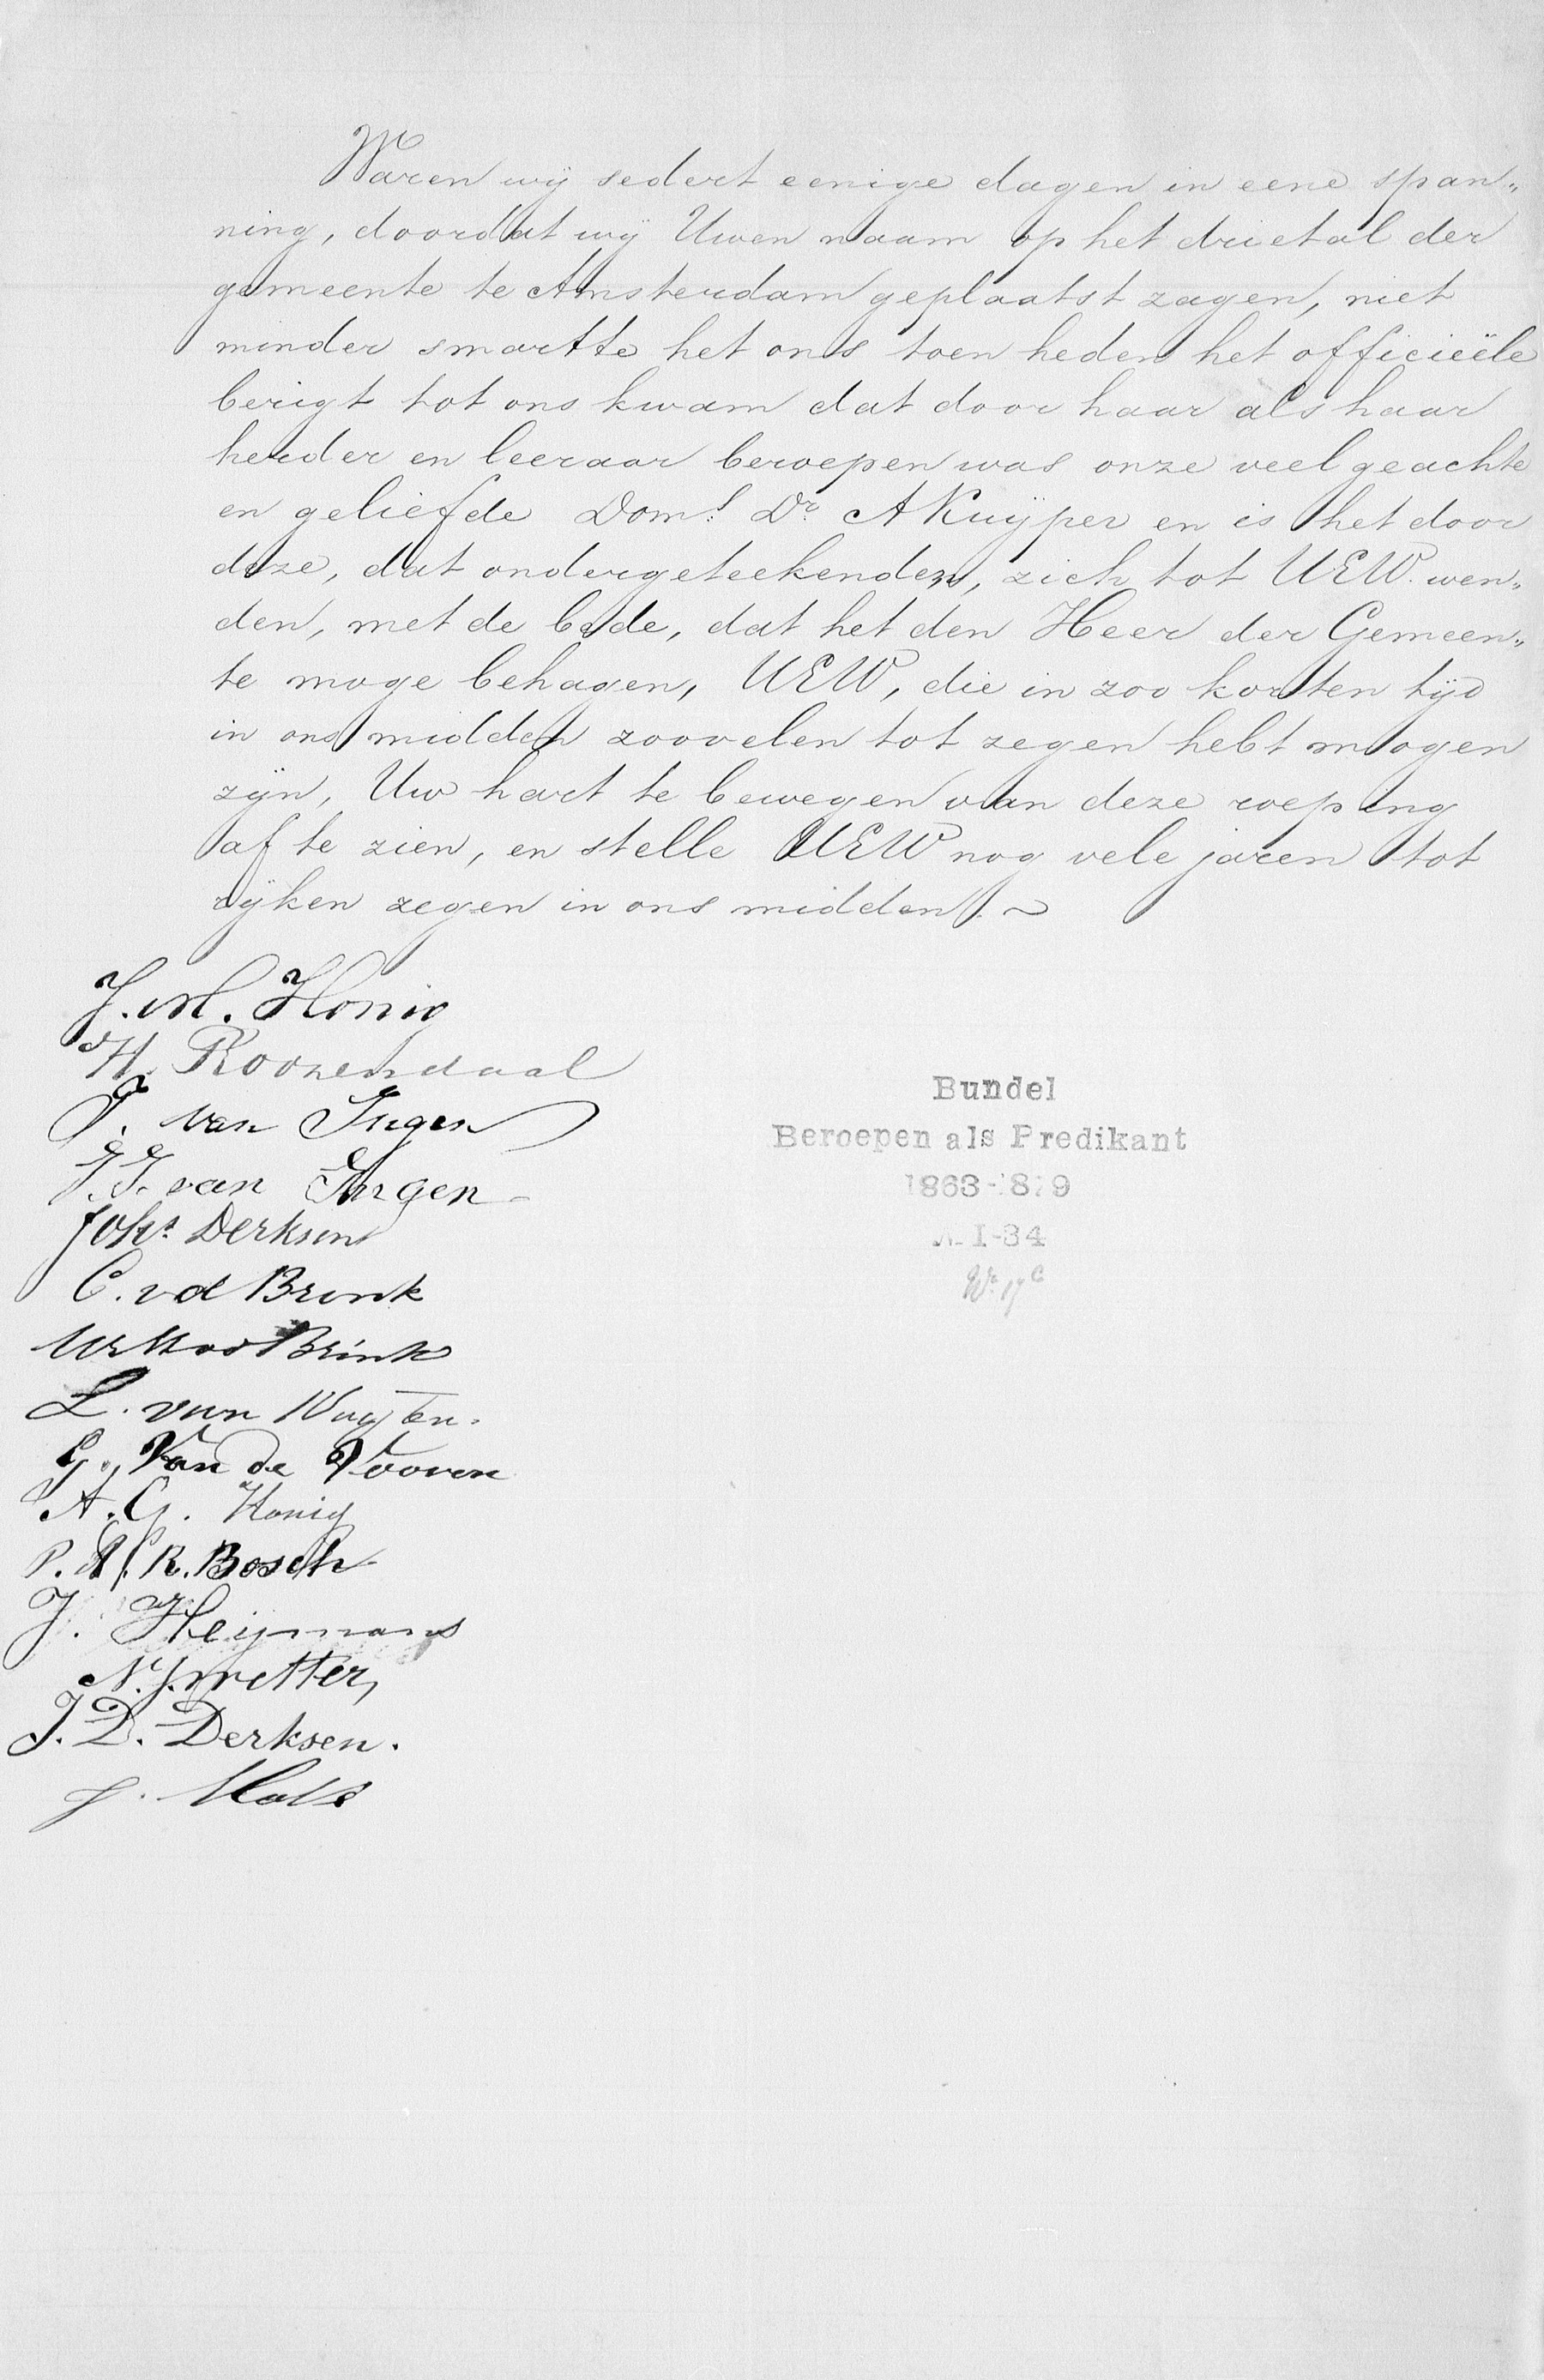 Waren wij sedert eenige dagen in eene span„
ning, doordat wij Uwen naam op het drietal der
gemeente te Amsterdam geplaatst zagen, niet
minder smartte het ons toen heden het officieële
berigt tot ons kwam dat door haar als haar
herder en leeraar beroepen was onze veel geachte
en geliefde Doms. Dr. A Kuijper en is het door
deze, dat ondergeteekenden, zich tot UEW. wen„
den, met de bede, dat het den Heer der Gemeen„
te moge behagen, UEW, die in zoo korten tijd
in ons midden zoovelen tot zegen hebt mogen
zijn, Uw hart te bewegen van deze roeping
af te zien, en stelle UEW nog vele jaren tot
rijken zegen in ons midden. ~
J. M. Honig
H. Roozendaal
T. van Ingen
J. J. van Ingen
Johs. Derksen
C. v d Brink
Brink
L. van
G. Van de Vooren
A. G. Honig
P. A. R. Bosch
J. Heijmans
N. J. metter,
J. D. Derksen.
J. Mols
Bundel
Beroepen als Predikant
1863-1879
I-34